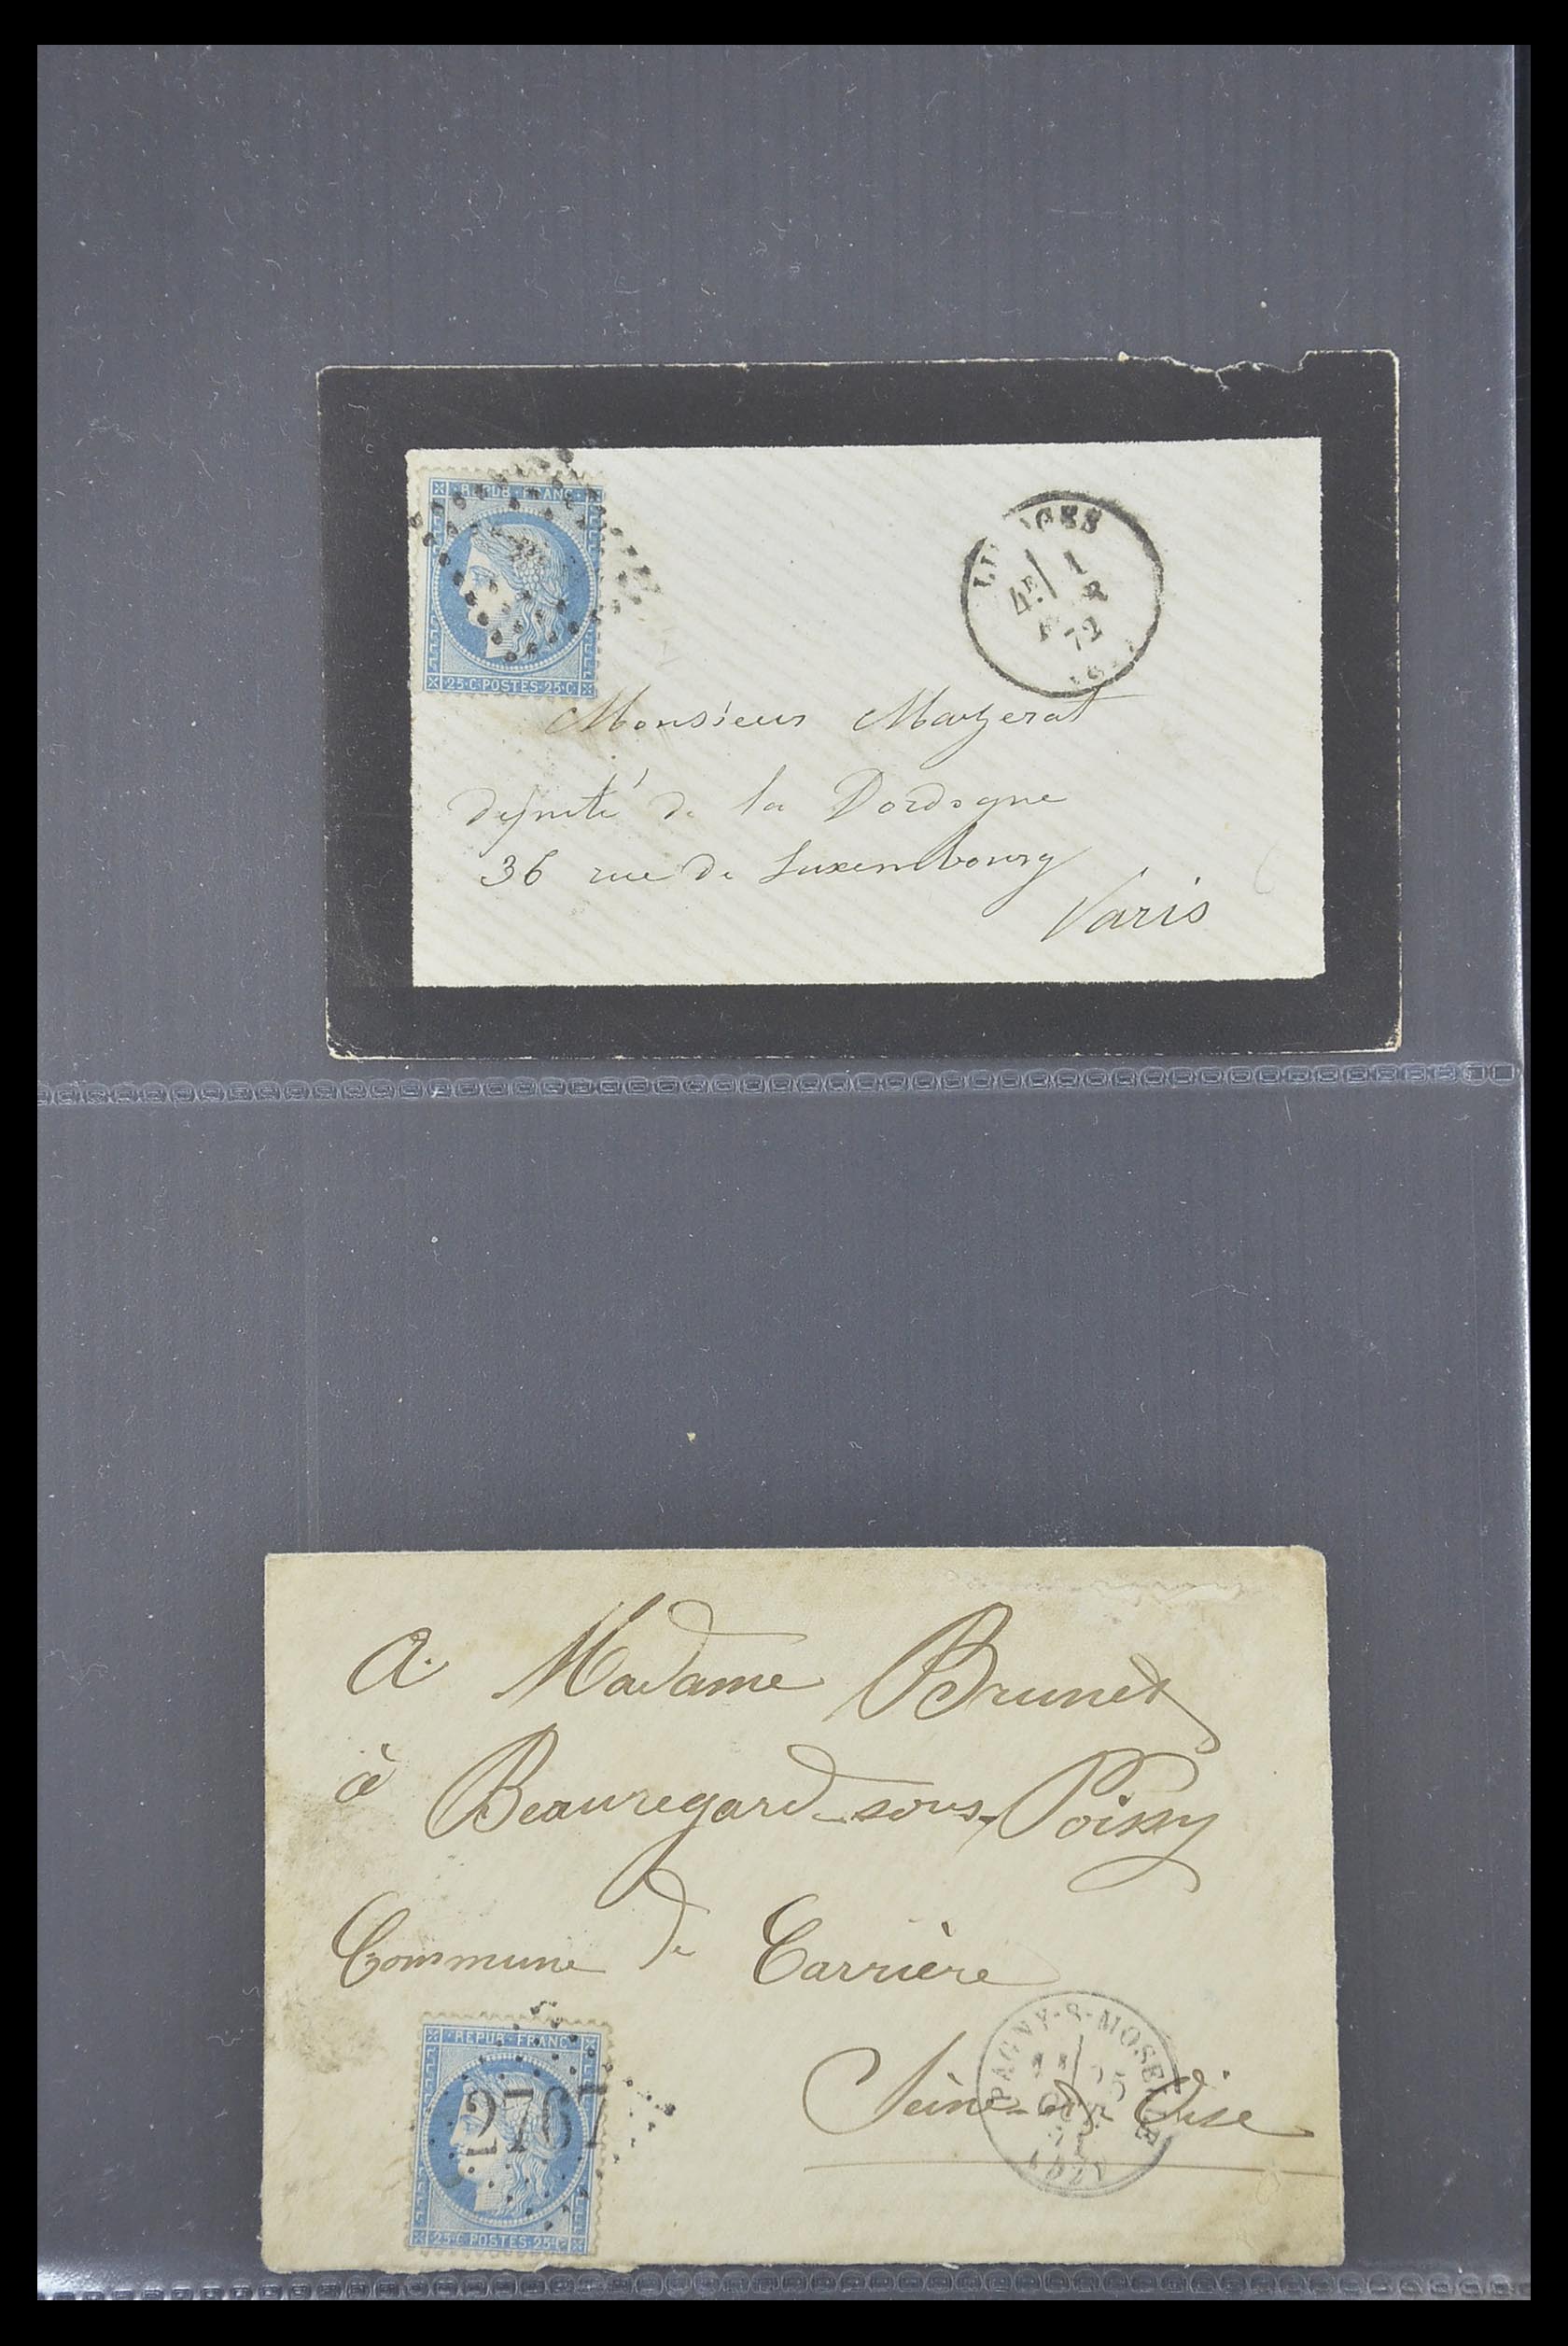 REPUB · FRANC
25·C·POSTES·25·C
4E 1
72
Monsieur Mazerat
député de la Dordogne
36 rue de Luxembourg
Paris
A Madame Brunet
à Beauregard-sous-Poissy
Commune de Carrière
Seine-et-Oise
REPUB · FRANC
2767
25·C·POSTES·25·C
PAGNY-S-MOSELLE